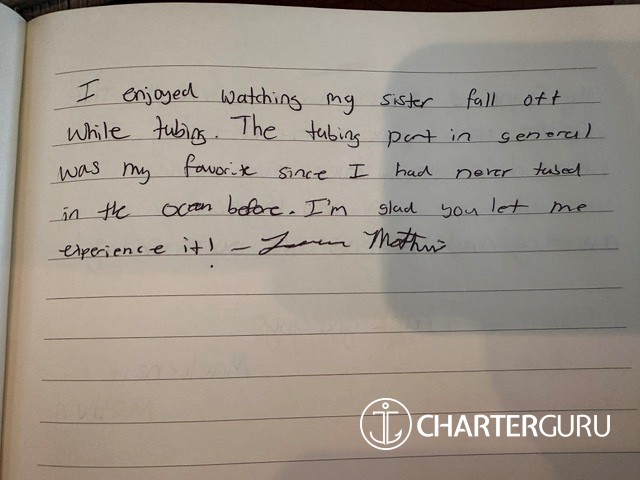 I enjoyed watching my sister fall off
while tubing. The tubing part in general
was my favorite since I had never tubed
in the ocean before. I'm glad you let me
experience it! –
CHARTERGURU